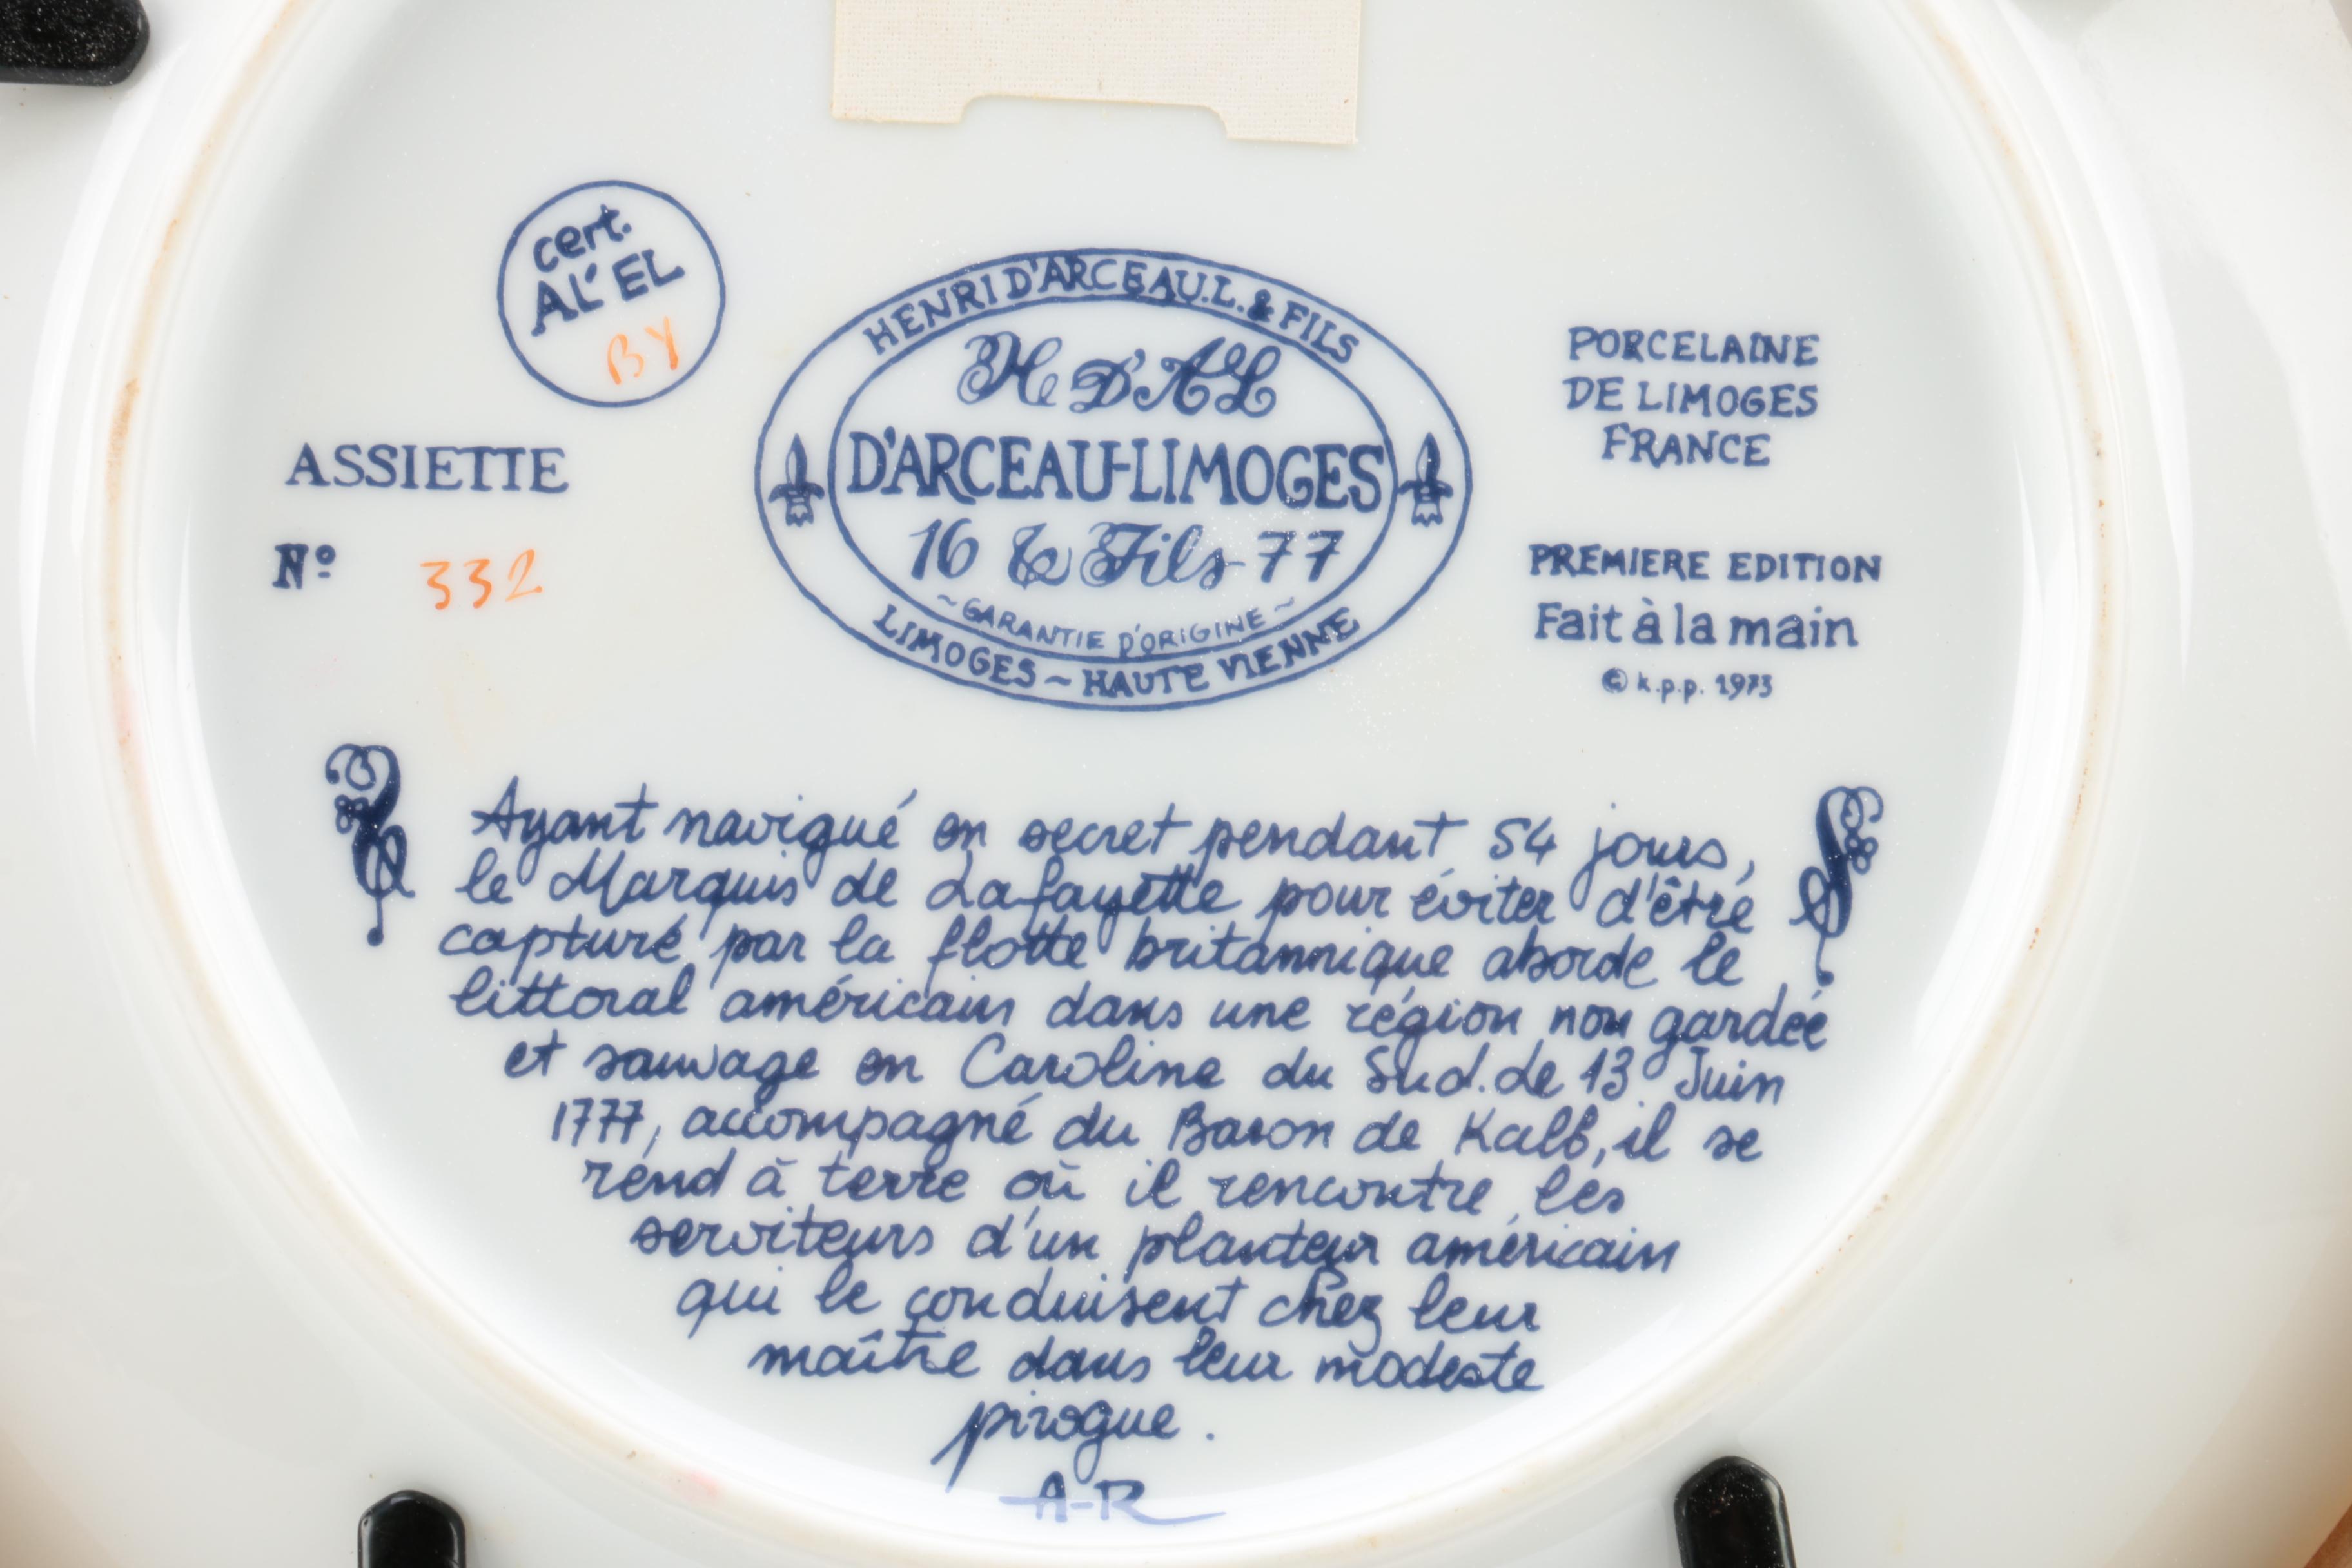 cert.
AL' EL
BY
ASSIETTE
Nº 332
HENRI D'ARCEAU.L. & FILS
H D'A & L
D'ARCEAU-LIMOGES
16 & Fils-77
~GARANTIE D'ORIGINE~
LIMOGES ~ HAUTE VIENNE
PORCELAINE
DE LIMOGES
FRANCE
PREMIERE EDITION
Fait à la main
© k.p.p. 1973
Ayant navigué en secret pendant 54 jours,
le Marquis de Lafayette pour éviter d'être
capturé par la flotte britannique aborde le
littoral américain dans une région non gardée
et sauvage en Caroline du Sud. Le 13 Juin
1777, accompagné du Baron de Kalb, il se
rend à terre où il rencontre les
serviteurs d'un planteur américain
qui le conduisent chez leur
maître dans leur modeste
pirogue.
A-R